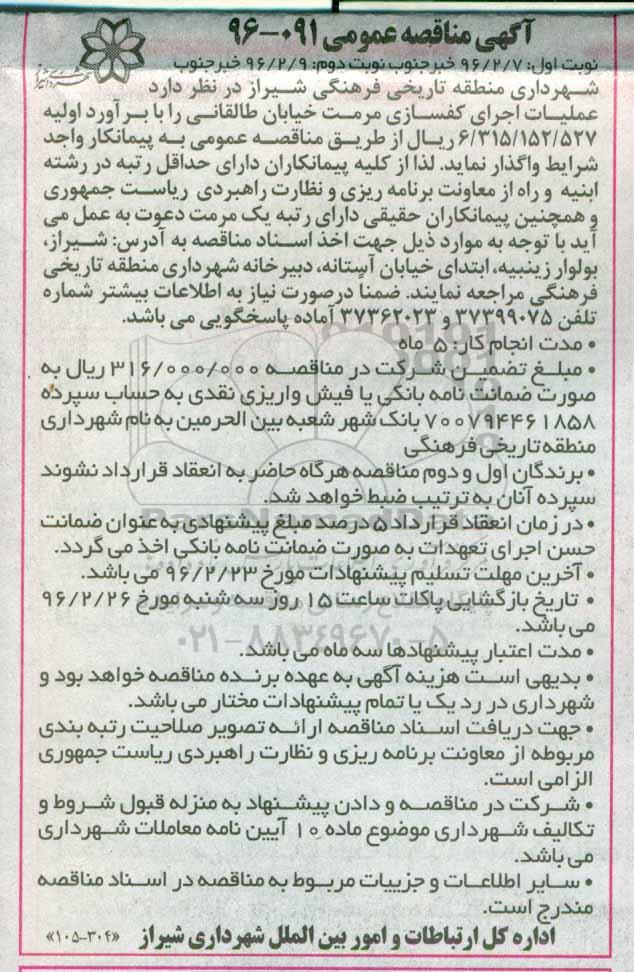 آگهی مناقصه عمومی ۰۹۱-۹۶
نوبت اول: ۹۶/۲/۷ خبرجنوب نوبت دوم: ۹۶/۲/۹ خبرجنوب
شهرداری منطقه تاریخی فرهنگی شیراز در نظر دارد
عملیات اجرای کفسازی مرمت خیابان طالقانی را با برآورد اولیه
۶/۳۱۵/۱۵۲/۵۲۷ ریال از طریق مناقصه عمومی به پیمانکار واجد
شرایط واگذار نماید. لذا از کلیه پیمانکاران دارای حداقل رتبه در رشته
ابنیه و راه از معاونت برنامه ریزی و نظارت راهبردی ریاست جمهوری
و همچنین پیمانکاران حقیقی دارای رتبه یک مرمت دعوت به عمل می
آید با توجه به موارد ذیل جهت اخذ اسناد مناقصه به آدرس: شیراز،
بولوار زینبیه، ابتدای خیابان آستانه، دبیرخانه شهرداری منطقه تاریخی
فرهنگی مراجعه نمایند. ضمنا درصورت نیاز به اطلاعات بیشتر شماره
تلفن ۳۷۳۹۹۰۷۵ و ۳۷۳۶۲۰۲۳ آماده پاسخگویی می باشد.
• مدت انجام کار: ۵ ماه
• مبلغ تضمین شرکت در مناقصه ۳۱۶/۰۰۰/۰۰۰ ریال به
صورت ضمانت نامه بانکی یا فیش واریزی نقدی به حساب سپرده
۷۰۰۷۹۴۴۶۱۸۵۸ بانک شهر شعبه بین الحرمین به نام شهرداری
منطقه تاریخی فرهنگی
• برندگان اول و دوم مناقصه هرگاه حاضر به انعقاد قرارداد نشوند
سپرده آنان به ترتیب ضبط خواهد شد.
• در زمان انعقاد قرارداد ۵ درصد مبلغ پیشنهادی به عنوان ضمانت
حسن اجرای تعهدات به صورت ضمانت نامه بانکی اخذ می گردد.
• آخرین مهلت تسلیم پیشنهادات مورخ ۹۶/۲/۲۳ می باشد.
• تاریخ بازگشایی پاکات ساعت ۱۵ روز سه شنبه مورخ ۹۶/۲/۲۶
می باشد.
• مدت اعتبار پیشنهادها سه ماه می باشد.
۰۲۱-۸۸۳۴۹۶۷۰-۵
• بدیهی است هزینه آگهی به عهده برنده مناقصه خواهد بود و
شهرداری در رد یک یا تمام پیشنهادات مختار می باشد.
• جهت دریافت اسناد مناقصه ارائه تصویر صلاحیت رتبه بندی
مربوطه از معاونت برنامه ریزی و نظارت راهبردی ریاست جمهوری
الزامی است.
• شرکت در مناقصه و دادن پیشنهاد به منزله قبول شروط و
تکالیف شهرداری موضوع ماده ۱۰ آیین نامه معاملات شهرداری
می باشد.
• سایر اطلاعات و جزییات مربوط به مناقصه در اسناد مناقصه
مندرج است.
اداره کل ارتباطات و امور بین الملل شهرداری شیراز «۳۰۴-۱۰۵»